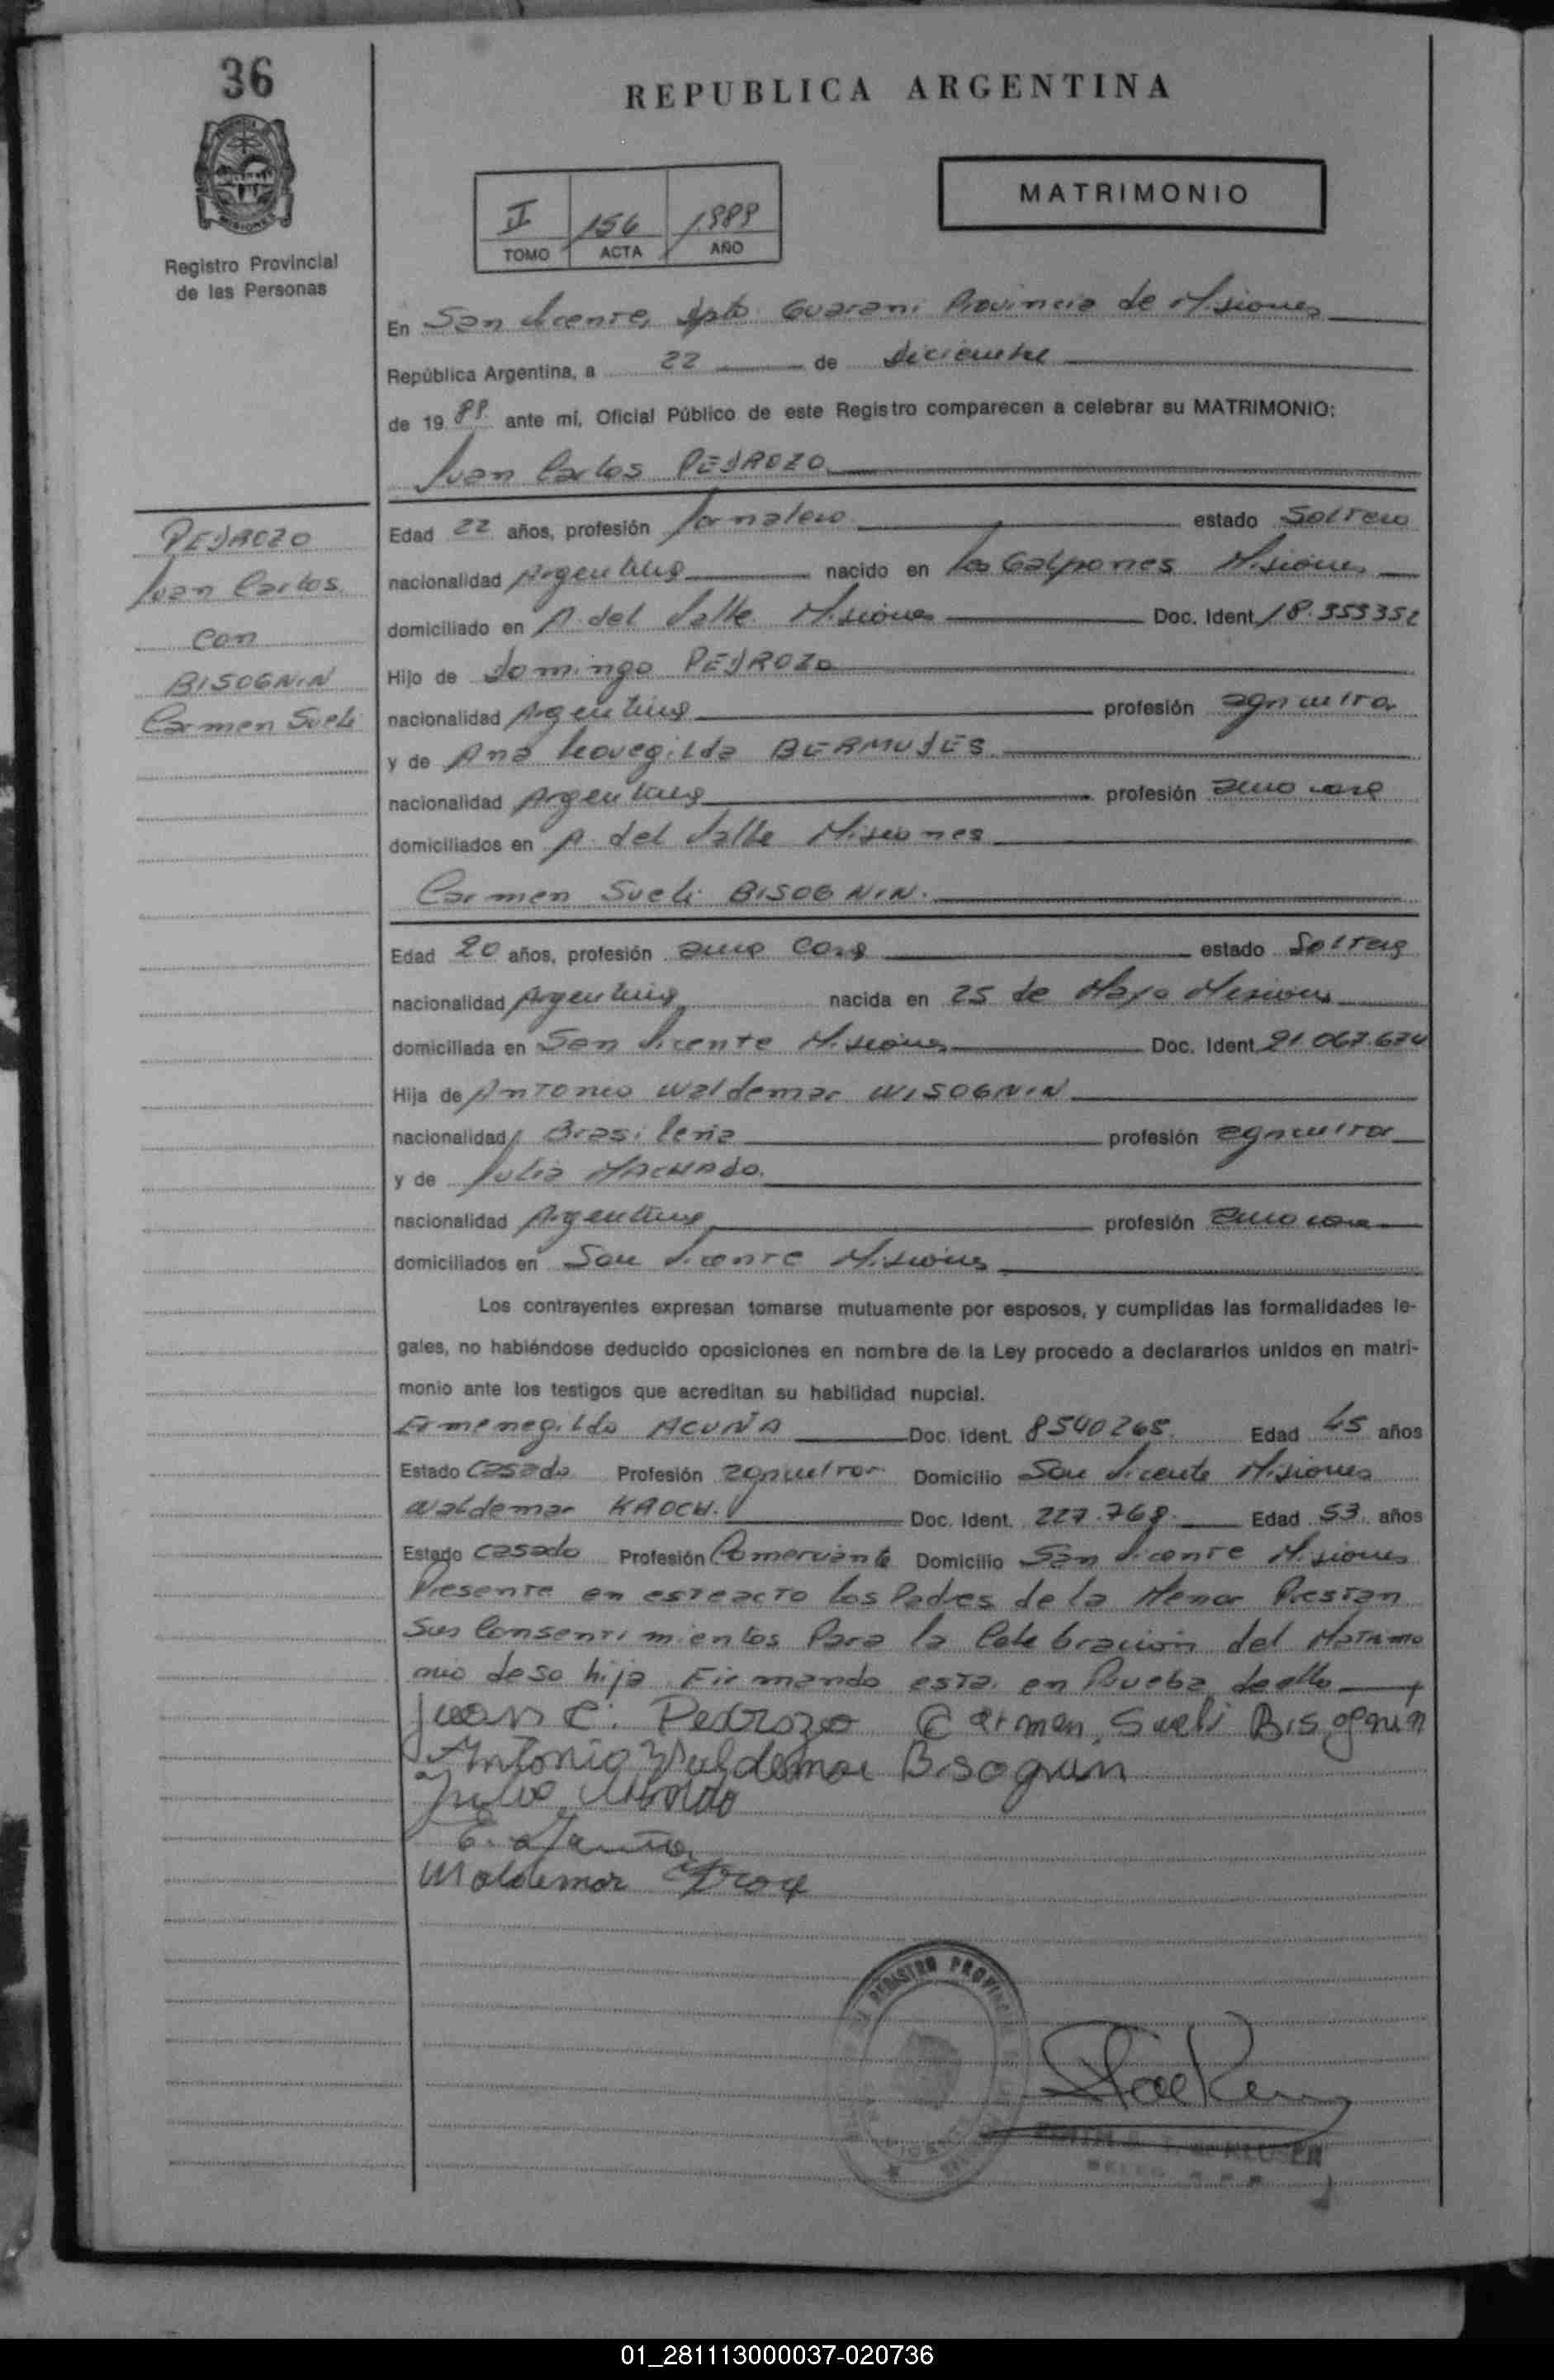 36
REPUBLICA ARGENTINA
MATRIMONIO
II 156 1989
TOMO ACTA AÑO
Registro Provincial
de las Personas
En San Vicente, Dpto Guarani Provincia de Misiones
República Argentina, a 22 de diciembre
de 19 89 ante mí, Oficial Público de este Registro comparecen a celebrar su MATRIMONIO:
Juan Carlos PEDROZO
PEDROZO
Juan Carlos
con
BISOGNIN
Carmen Sueli
Edad 22 años, profesión Jornalero estado Soltero
nacionalidad Argentina nacido en los Galpones Misiones
domiciliado en A. del Valle Misiones Doc. Ident. 18.353352
Hijo de Domingo PEDROZO
nacionalidad Argentina profesión agricultor
y de Ana Leovegilda BERMUDES
nacionalidad Argentina profesión ama casa
domiciliados en A. del Valle Misiones
Carmen Sueli BISOGNIN.
Edad 20 años, profesión ama casa estado Soltera
nacionalidad Argentina nacida en 25 de Mayo Misiones
domiciliada en San Vicente Misiones Doc. Ident. 21.067.674
Hija de Antonio Waldemar WISOGNIN
nacionalidad Brasileña profesión agricultor
y de Julia MACHADO.
nacionalidad Argentina profesión ama casa
domiciliados en San Vicente Misiones
Los contrayentes expresan tomarse mutuamente por esposos, y cumplidas las formalidades le-
gales, no habiéndose deducido oposiciones en nombre de la Ley procedo a declararlos unidos en matri-
monio ante los testigos que acreditan su habilidad nupcial.
Ermenegildo ACUÑA Doc. Ident. 8540265. Edad 45 años
Estado casado Profesión agricultor Domicilio San Vicente Misiones
Waldemar KROCH. Doc. Ident. 227.768. Edad 53 años
Estado casado Profesión Comerciante Domicilio San Vicente Misiones
Presente en este acto los Padres de la Menor Prestan
Sus Consentimientos Para la Celebración del Matrimo
nio de so hija Firmando esta en Prueba de ello
Juan C. Pedrozo Carmen Sueli Bisognin
Antonio Waldemar Bisognin
E. Acuña
Waldemar
REGISTRO PROVINCIAL
01_281113000037-020736